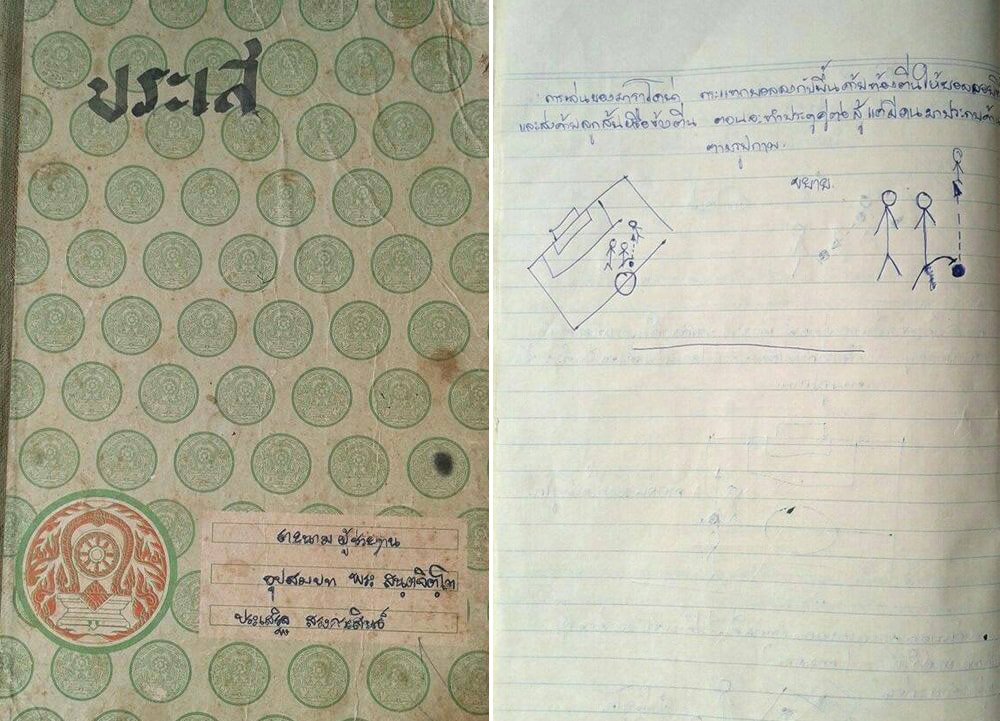 ประเส
รายนาม ผู้ช่วยงาน
อุปสมบท พระ สนฺตจิตฺโต
ประเสริฐ
การเล่นของมาราโดน่า กระแทกบอลลงกับพื้น ด้วยท้องตีนให้บอลลอย
และส่งด้วยลูกส้นหรือข้างตีน ตอนจะทำประตูคู่ต่อสู้ แต่มีคนมาประกบ
ตามรูปภาพ.
ขยาย